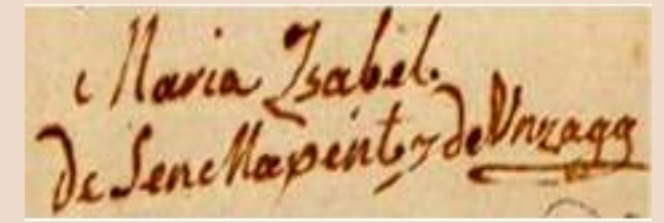 Maria Ysabel.
de Sent Maxent y de Unzaga